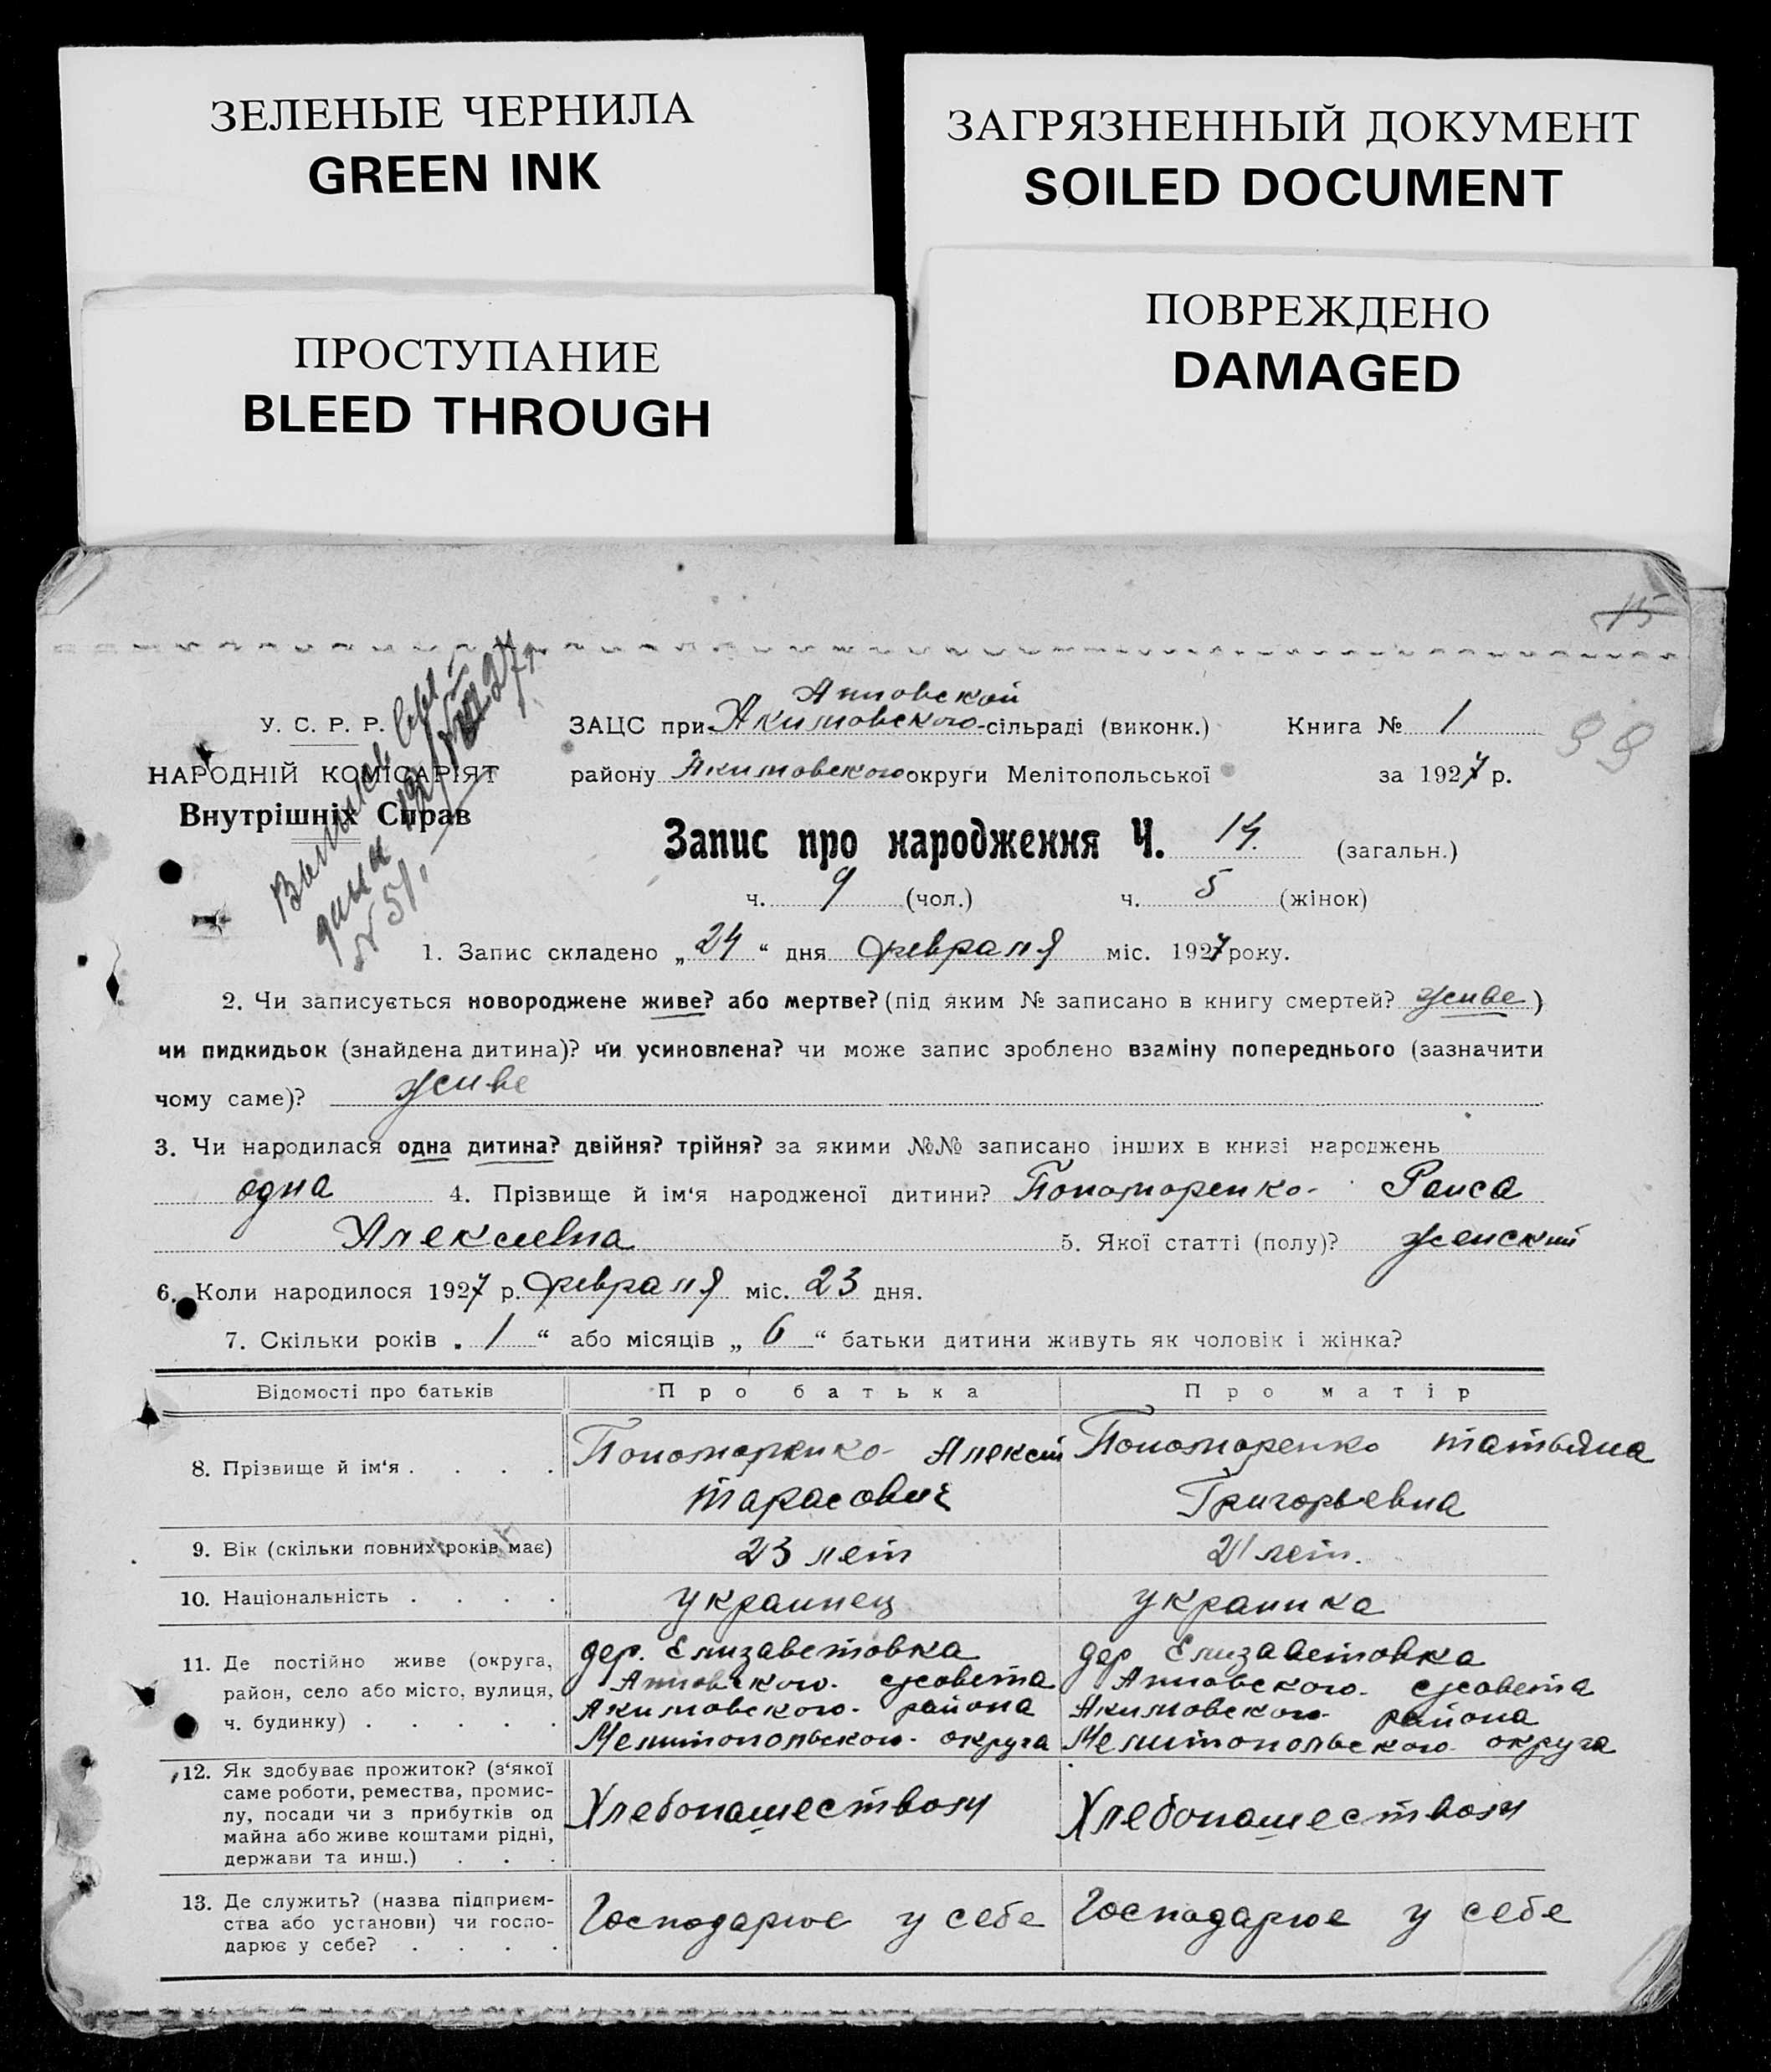 ЗЕЛЕНЫЕ ЧЕРНИЛА
GREEN INK
ЗАГРЯЗНЕННЫЙ ДОКУМЕНТ
SOILED DOCUMENT
ПРОСТУПАНИЕ
BLEED THROUGH
ПОВРЕЖДЕНО
DAMAGED
15
У. С. Р. Р.
НАРОДНІЙ КОМІСАРІЯТ
Внутрішніх Справ
дана
№ 51.
Анновской
ЗАЦС при Акимовского сільраді (виконк.) Книга № 1
району Акимовского округи Мелітопольської за 1927 р.
Запис про народження Ч. 14. (загальн.)
ч. 9 (чол.) ч. 5 (жінок)
1. Запис складено „24“ дня февраля міс. 1927 року.
2. Чи записується новороджене живе? або мертве? (під яким № записано в книгу смертей? живе)
чи пидкидьок (знайдена дитина)? чи усиновлена? чи може запис зроблено взаміну попереднього (зазначити
чому саме)? живе
3. Чи народилася одна дитина? двійня? трійня? за якими №№ записано інших в книзі народжень
одна 4. Прізвище й ім'я народженої дитини? Пономоренко Раиса
Алексиевна 5. Якої статті (полу)? женский
6. Коли народилося 1927 р. февраля міс. 23 дня.
7. Скільки років „1“ або місяців „6“ батьки дитини живуть як чоловік і жінка?
Відомості про батьків Про батька Про матір
8. Прізвище й ім'я . . . . Пономоренко Алексий Тарасович Пономоренко Татьяна Григорьевна
9. Вік (скільки повних років має) 23 лет 21 лет.
10. Національність . . . . украинец украинка
11. Де постійно живе (округа, район, село або місто, вулиця, ч. будинку) . . . . .
дер. Елизаветовка дер. Елизаветовка
Анновского с/совета Анновского с/совета
Акимовского района Акимовского района
Мелитопольского округа Мелитопольского округа
12. Як здобуває прожиток? (з'якої
саме роботи, ремества, промис-
лу, посади чи з прибутків од
майна або живе коштами рідні,
держави та инш.) . . .
Хлебопашеством Хлебопашеством
13. Де служить? (назва підприєм-
ства або установи) чи госпо-
дарює у себе? . . . .
Господарює у себе Господарює у себе